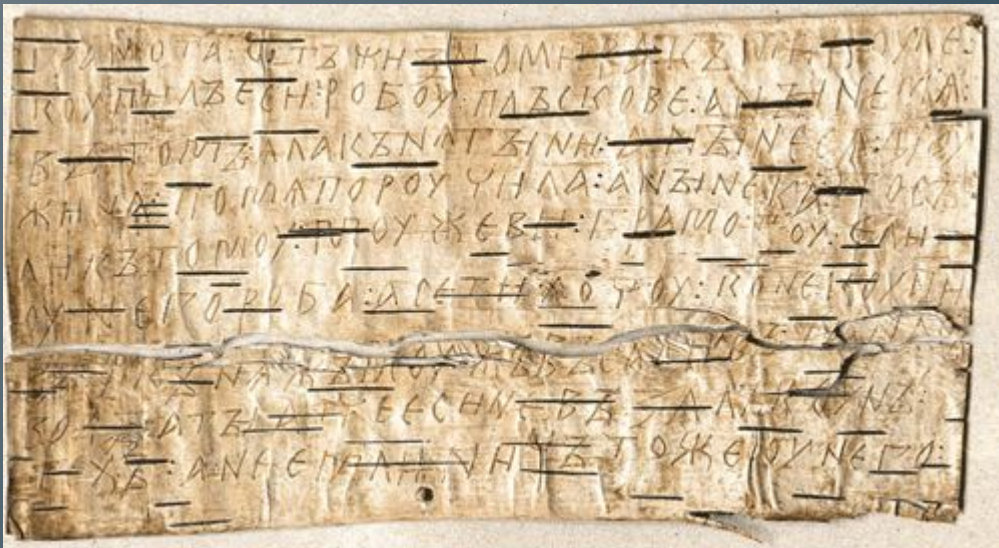 грамота : ѡтъ жизномира : къ микоуле :
коупилъ еси : робоу : плъскове : а нъıне мѧ :
въ томъ : ѧла кънѧгъıни : а нъıне сѧ дроу
жина : по мѧ пороучила : а нъıне ка посъ
ли къ томоу : моужеви : грамотоу : ели
оу него роба : а се ти хочоу : коне коупи
въ : и кънѧжъ моужъ въсадивъ та на съ
водъı : а тъı атче еси не възалъ коунъ :
техъ : а не емли : ничъто же оу него :